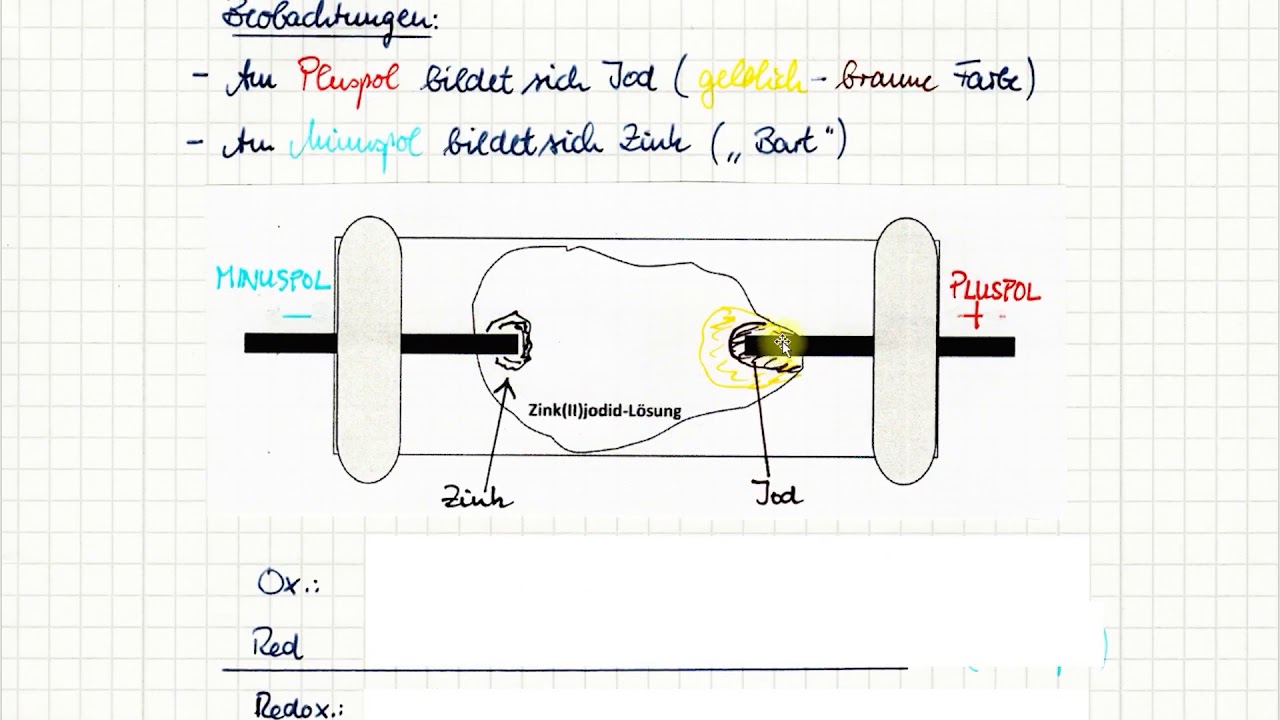 Beobachtungen:
- Am Pluspol bildet sich Jod (gelblich-braune Farbe)
- Am Minuspol bildet sich Zink („Bart“)
MINUSPOL
−
PLUSPOL
+
Zink(II)jodid-Lösung
Zink
Jod
Ox.:
Red
Redox.: